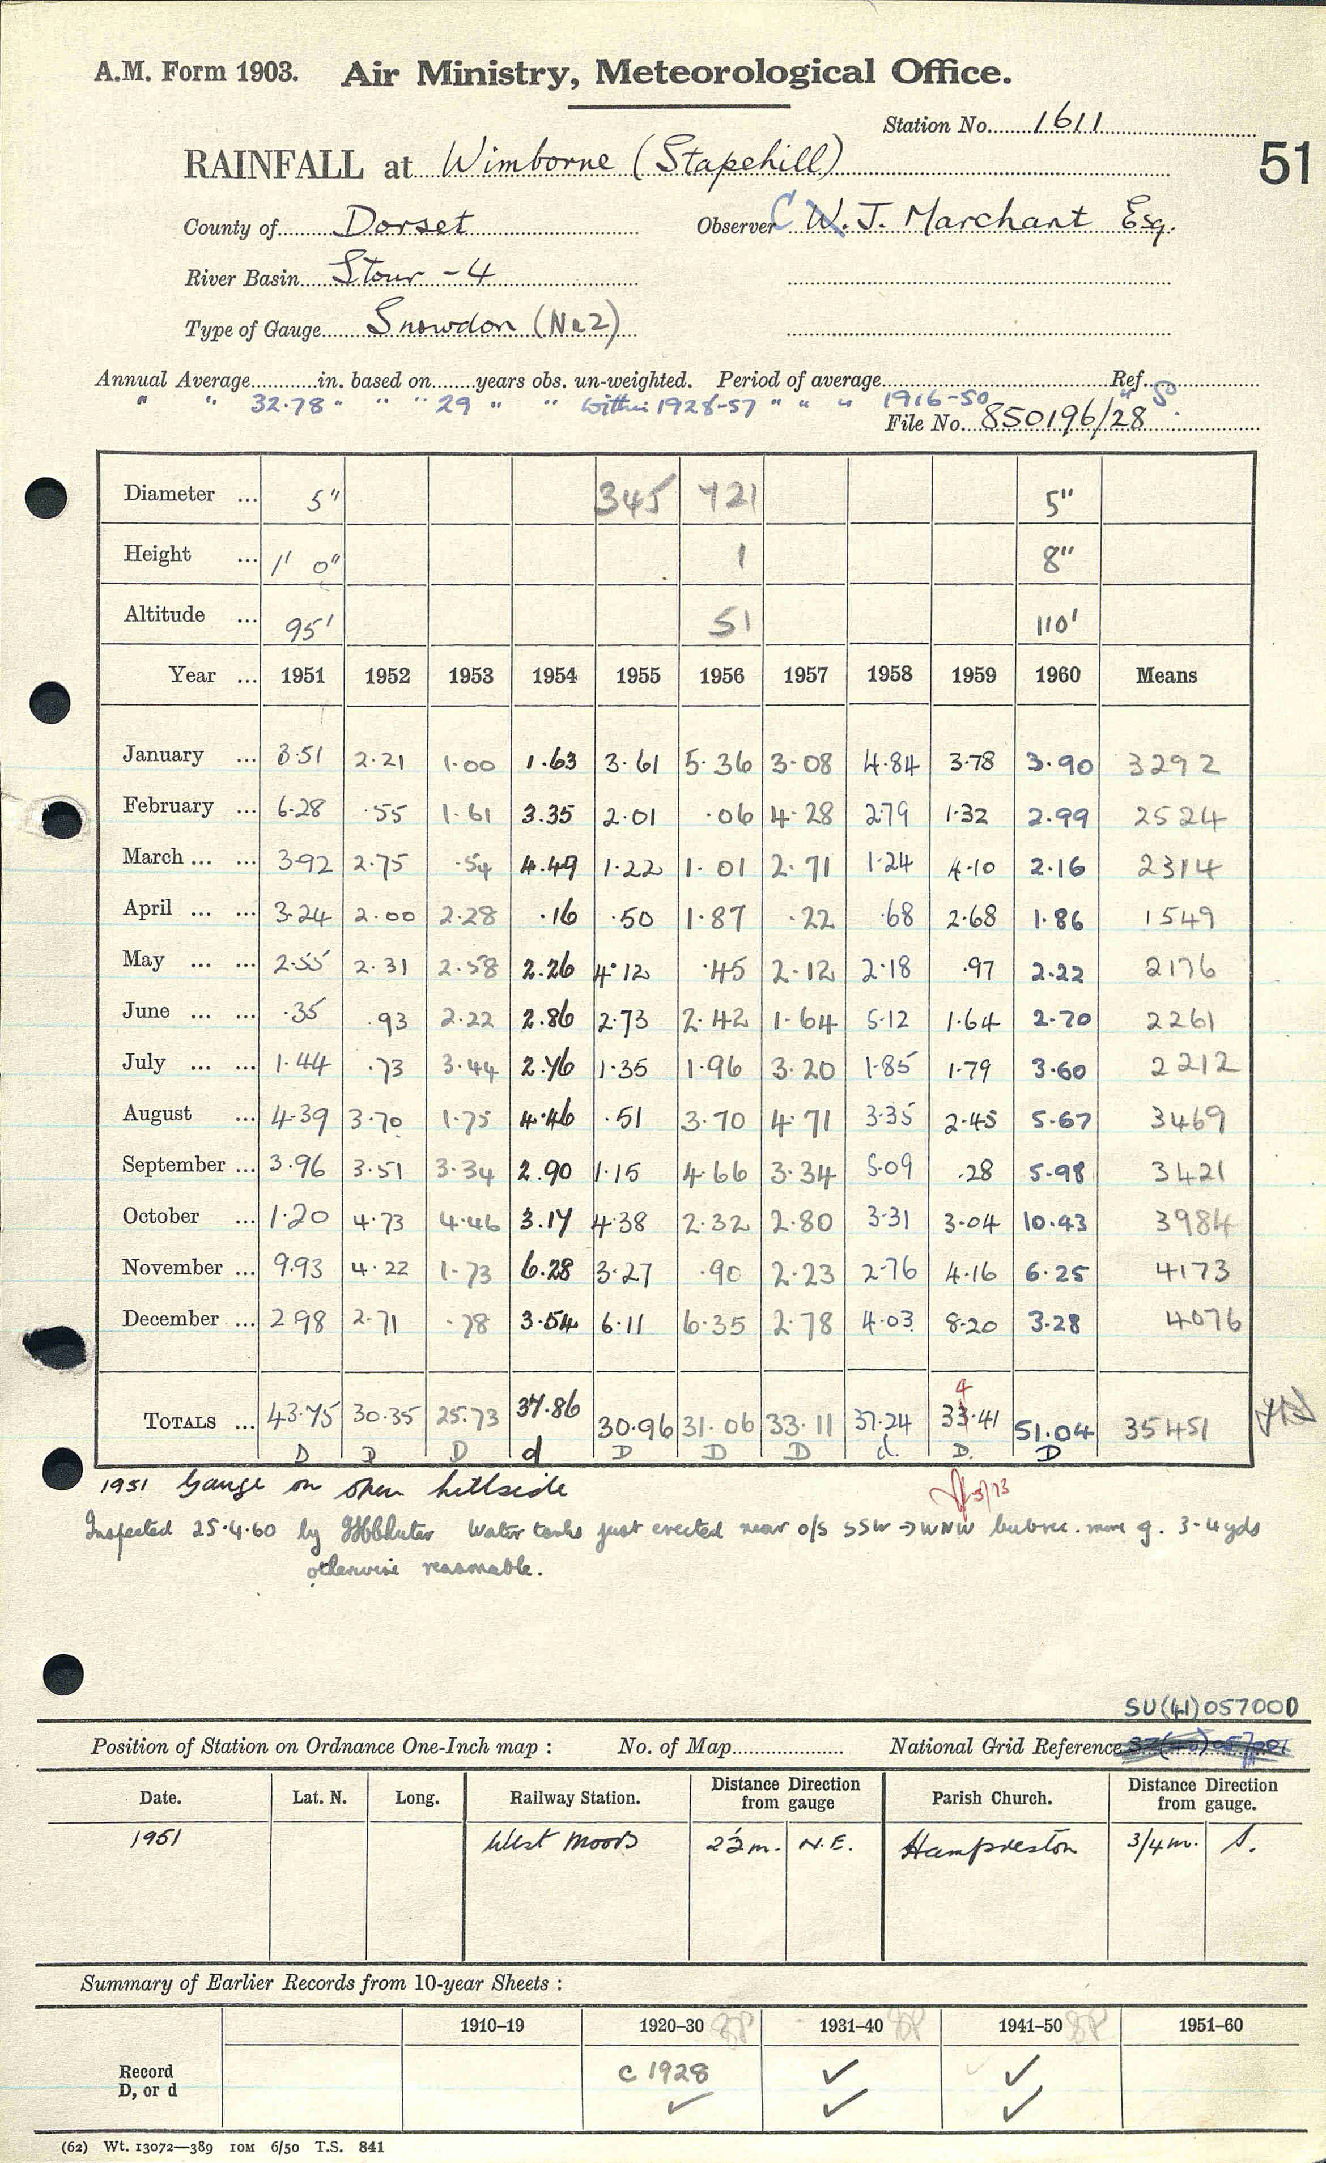 A.M. Form 1903. Air Ministry, Meteorological Office.
Station No. 1611
51
RAINFALL at Wimborne (Stapehill)
County of Dorset Observer C W.J. Marchant Esq.
River Basin Stour -4
Type of Gauge Snowdon (No 2)
Annual Average in. based on years obs. un-weighted. Period of average Ref.
" " 32.78 " " " 29 " " within 1928-57 " " " 1916-50 " S.
File No. 850196/28
Diameter ... 5" 345 721 5"
Height ... 1' 0" 1 8"
Altitude ... 95' 51 110'
Year ... 1951 1952 1953 1954 1955 1956 1957 1958 1959 1960 Means
January ... 3.51 2.21 1.00 1.63 3.61 5.36 3.08 4.84 3.78 3.90 3292
February ... 6.28 .55 1.61 3.35 2.01 .06 4.28 2.79 1.32 2.99 2524
March ... ... 3.92 2.75 .54 4.49 1.22 1.01 2.71 1.24 4.10 2.16 2314
April ... ... 3.24 2.00 2.28 .16 .50 1.87 .22 .68 2.68 1.86 1549
May ... ... 2.55 2.31 2.58 2.26 4.12 .45 2.12 2.18 .97 2.22 2176
June ... ... .35 .93 2.22 2.86 2.73 2.42 1.64 5.12 1.64 2.70 2261
July ... ... 1.44 .73 3.44 2.76 1.35 1.96 3.20 1.85 1.79 3.60 2212
August ... 4.39 3.70 1.75 4.46 .51 3.70 4.71 3.35 2.45 5.67 3469
September ... 3.96 3.51 3.34 2.90 1.15 4.66 3.34 5.09 .28 5.98 3421
October ... 1.20 4.73 4.46 3.17 4.38 2.32 2.80 3.31 3.04 10.43 3984
November ... 9.93 4.22 1.73 6.28 3.27 .90 2.23 2.76 4.16 6.25 4173
December ... 2.98 2.71 .78 3.54 6.11 6.35 2.78 4.03 8.20 3.28 4076
4
TOTALS ... 43.75 30.35 25.73 37.86 30.96 31.06 33.11 37.24 33.41 51.04 35451
D D D d D D D d. D. D
1951 Gauge on open hillside 5/73
Inspected 25.4.60 by Water tanks just erected near o/s SSW → WNW but rec. move g. 3-4 yds
otherwise reasonable.
SU(41)057000
Position of Station on Ordnance One-Inch map : No. of Map National Grid Reference
Date. Lat. N. Long. Railway Station. Distance Direction from gauge Parish Church. Distance Direction from gauge.
1951 West Moors 2½m. N.E. Hampreston 3/4m. S.
Summary of Earlier Records from 10-year Sheets :
1910–19 1920–30 1931–40 1941–50 1951–60
Record D, or d c 1928 ✓ ✓
✓ ✓ ✓
(62) Wt. 13072—389 10M 6/50 T.S. 841